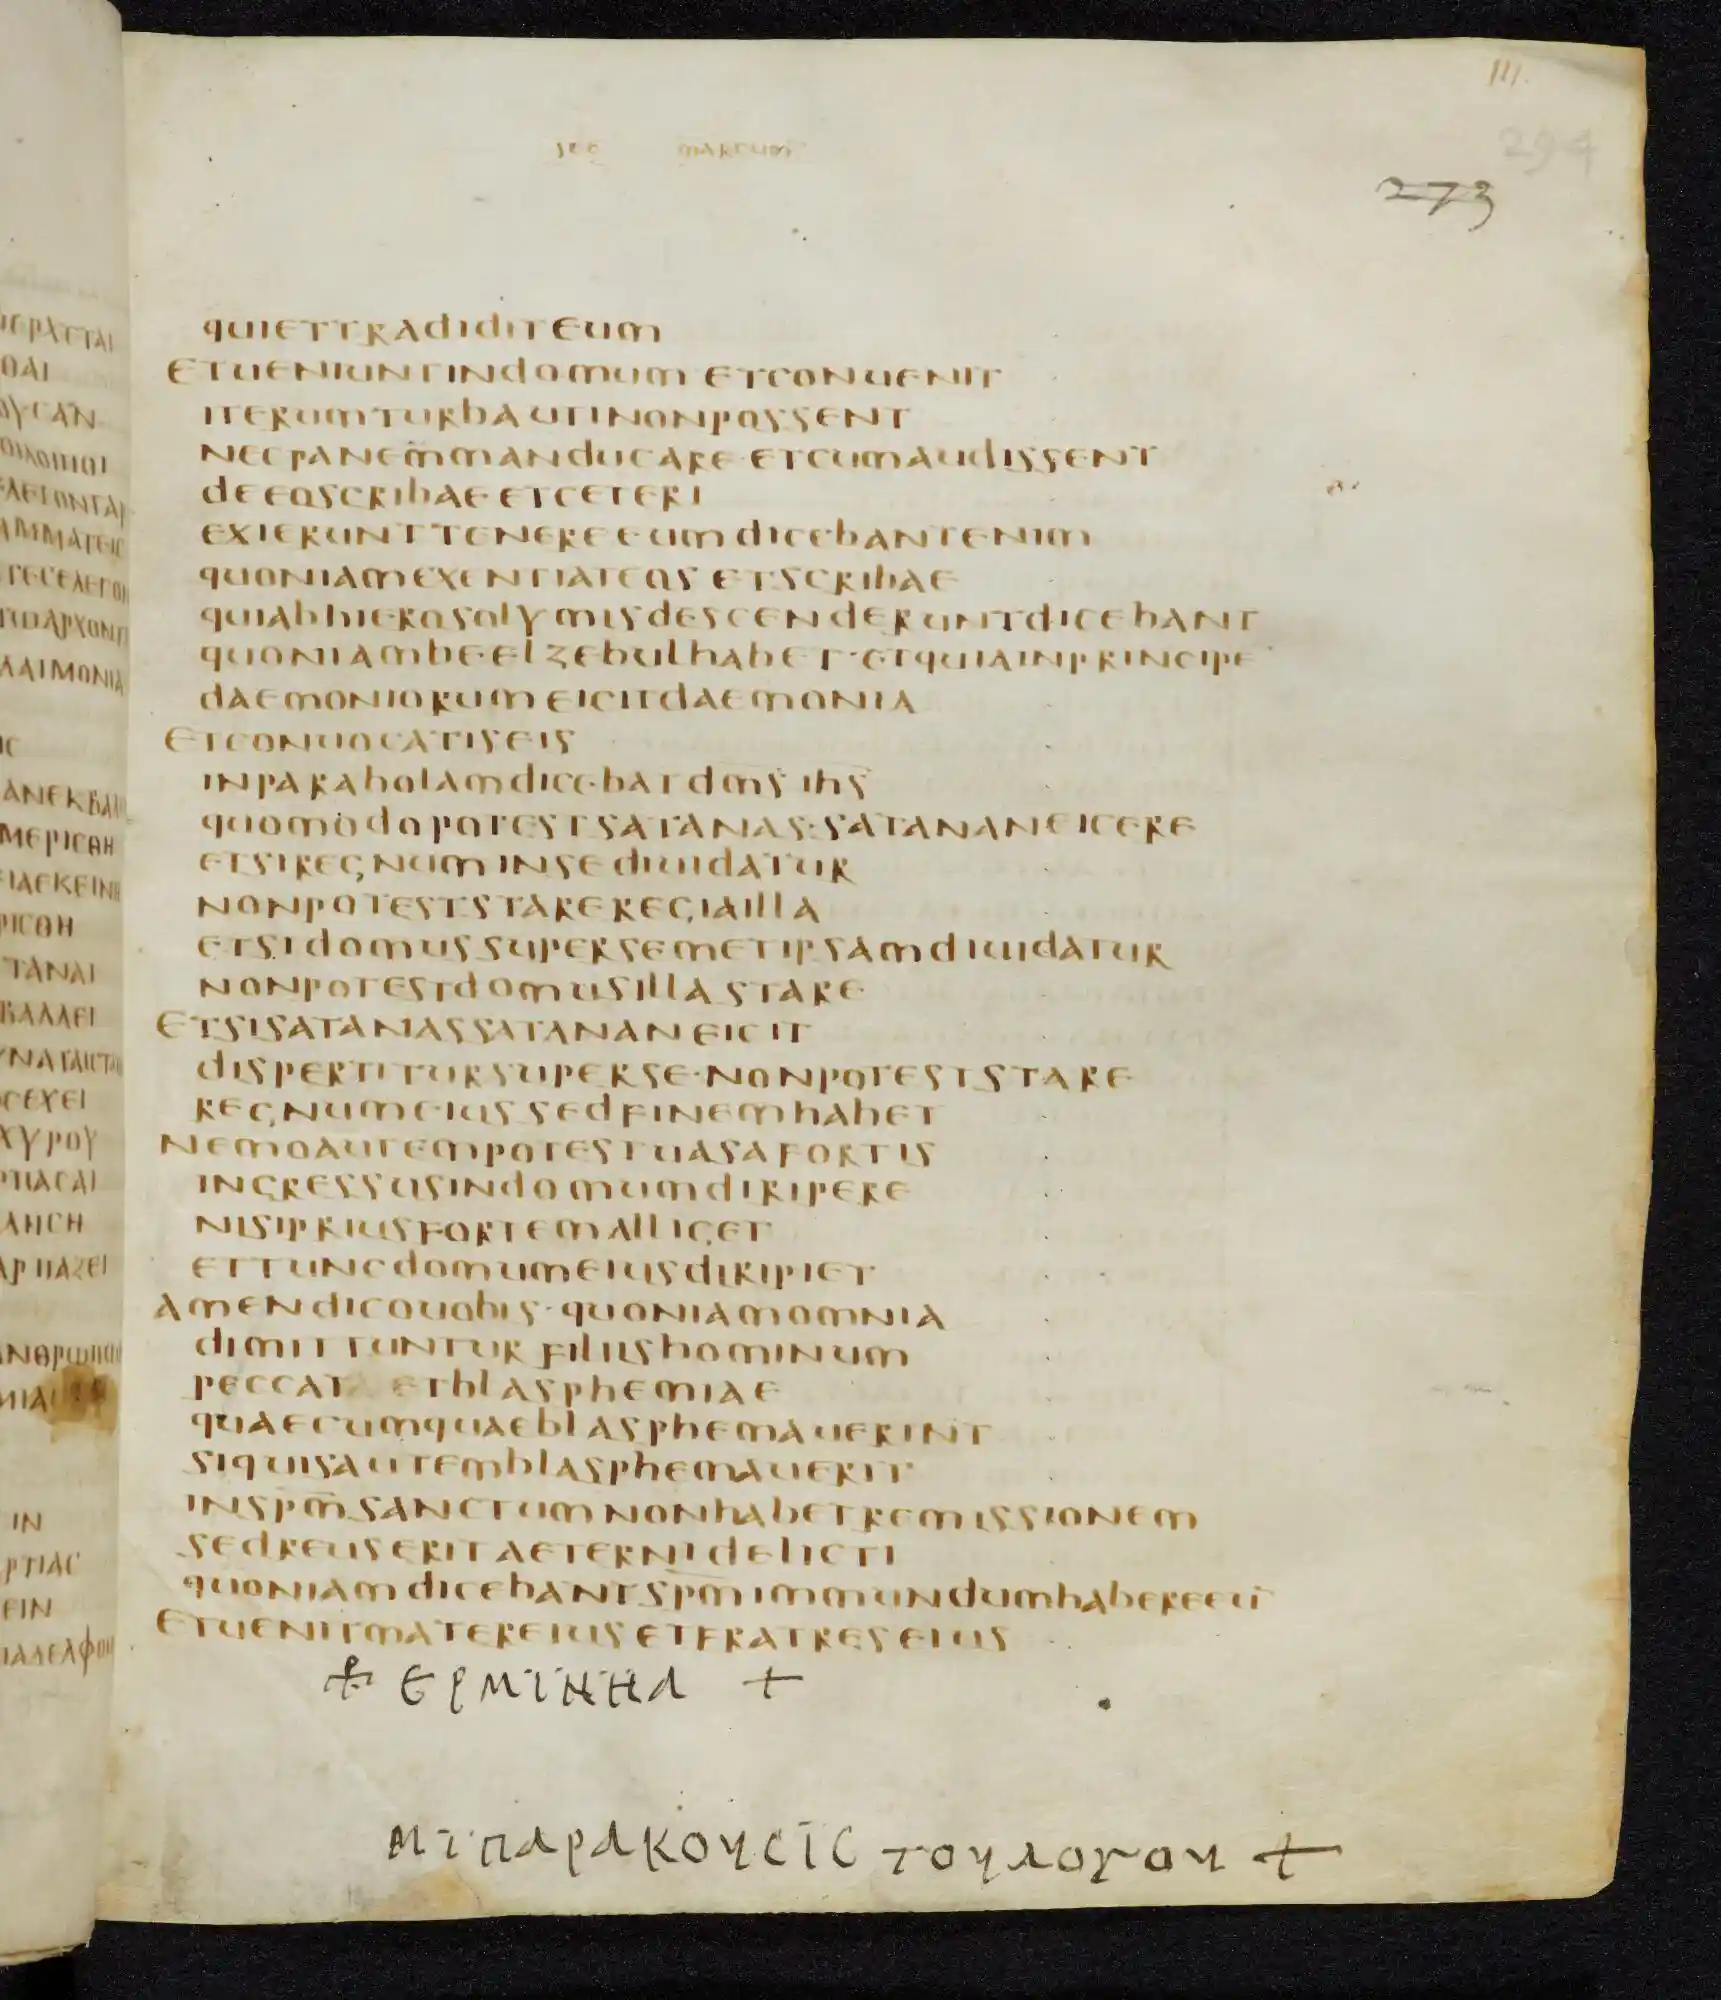 111.
294
sec marcum
273
quiettradiditeum
etueniuntindomum etconuenit
iterumturbautinonpossent
necpanem̅manducare·etcumaudissent
deeoscribae·etceteri
exierunttenereeumdicebantenim
quoniamexentiateos etscribae
quiabhierosolymisdescenderuntdicebant
quoniambeelzebulhabet·etquiainprincipe
daemoniorumeicitdaemonia
etconuocatiseis
inparabolamdicebatdm̅s ih̅s
quomodopotestsatanas:satananeicere
etsiregnuminsediuidatur
nonpoteststareregiailla
etsidomussupersemetipsamdiuidatur
nonpotestdomusillastare
etsisatanassatananeicit
dispertitursuperse·nonpoteststare
regnumeiussedfinemhabet
nemoautempotestuasafortis
ingressusindomumdiripere
nisipriusfortemalliget
ettuncdomumeiusdiripiet
amendicouobis·quoniamomnia
dimittunturfiliishominum
peccata etblasphemiae
quaecumquaeblasphemauerint
siquisautemblasphemauerit
insp̅m̅sanctumnonhabetremissionem
sedreuseritaeternidelicti
quoniamdicebantsp̅m̅immundumhabereeu̅
etuenitmatereiusetfratreseius
+ ερμϊνηα +
μϊπαρακουσϊς τουλογου +